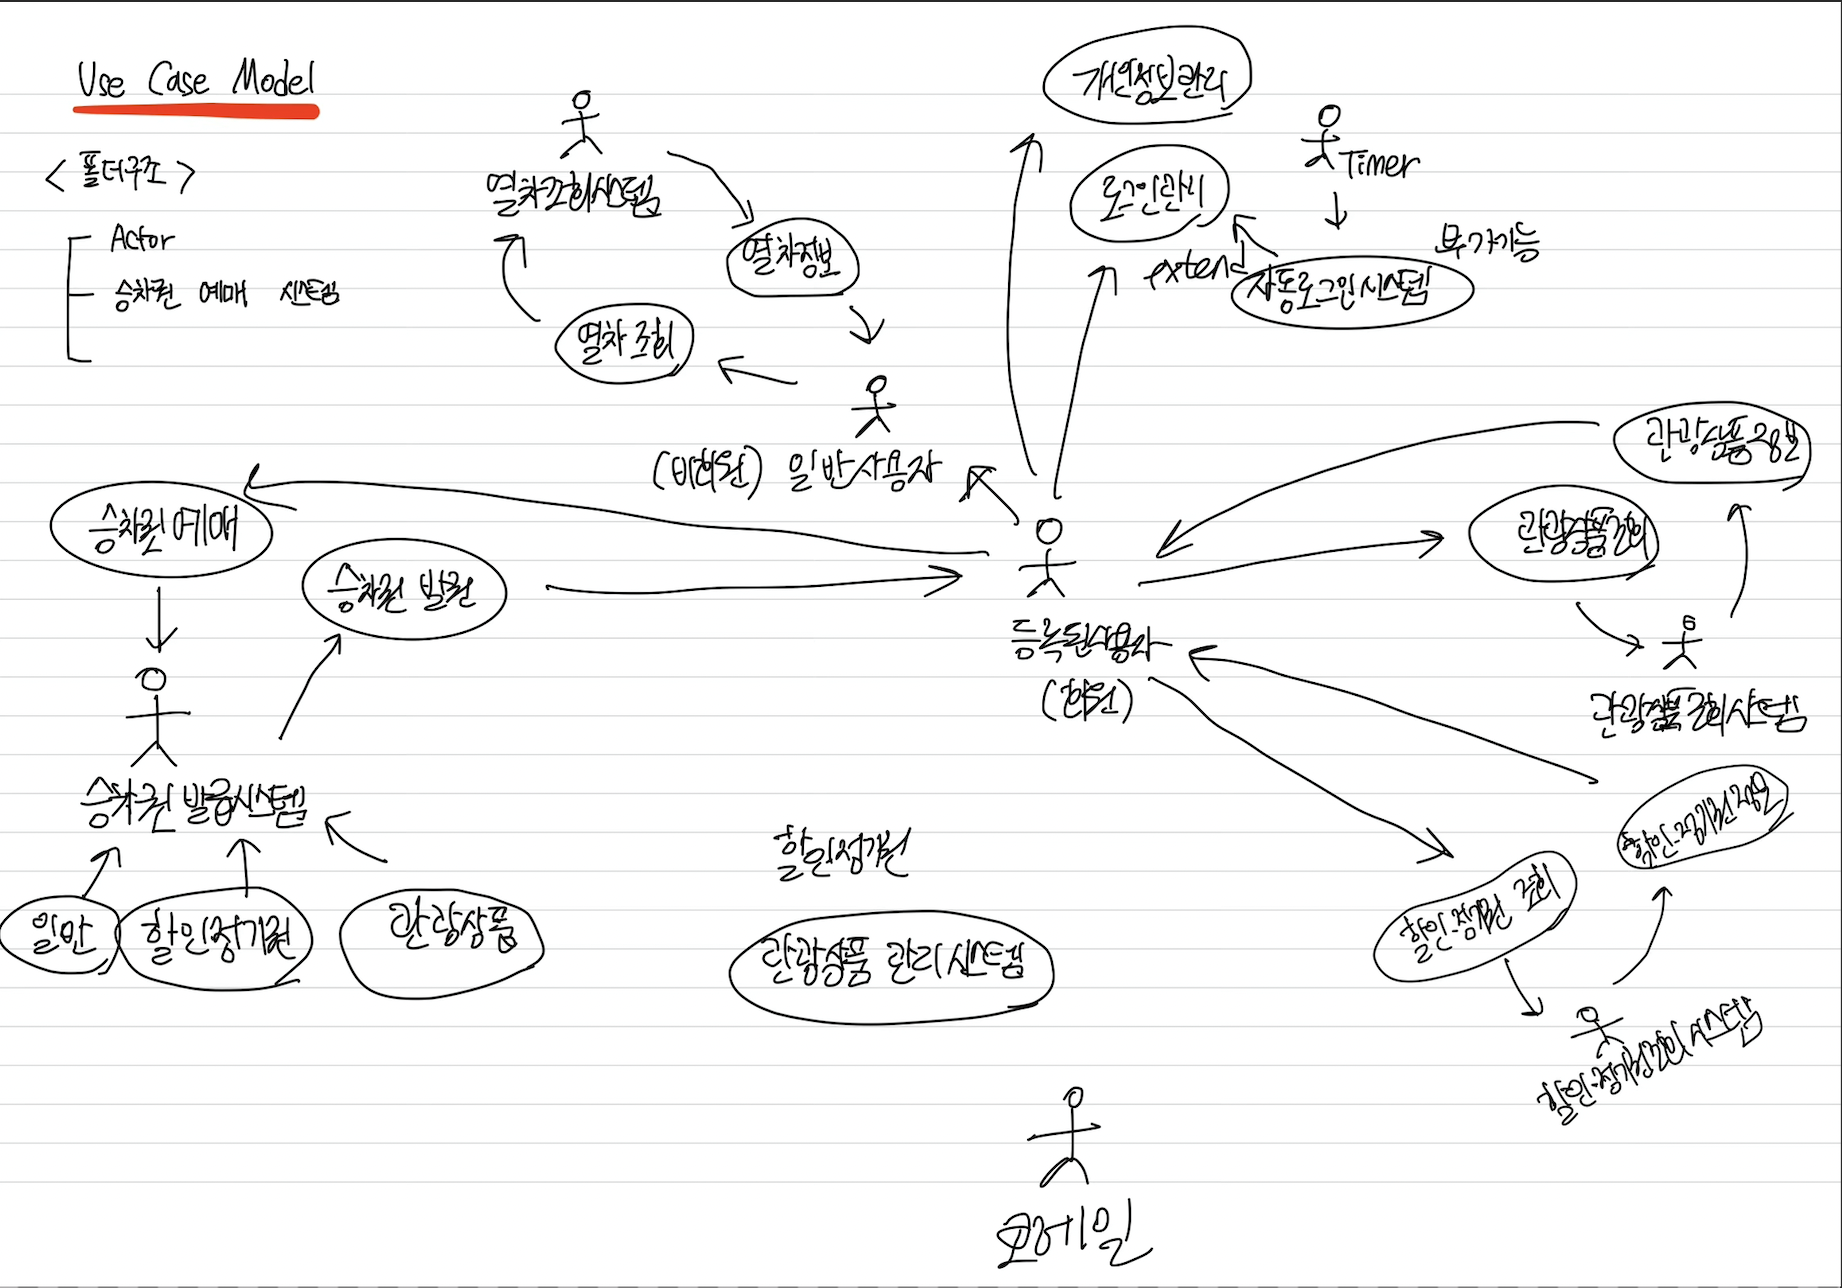 Use Case Model
< 폴더구조 >
Actor
승차권 예매 시스템
열차조회시스템
열차정보
열차 조회
(비회원) 일반사용자
개인정보관리
로그인관리
Timer
extend
부가기능
자동로그인시스템
관광상품정보
관광상품조회
관광상품조회시스템
승차권예매
승차권 발권
등록된사용자
(회원)
승차권 발급시스템
일반
할인정기권
관광상품
할인정기권
관광상품 관리시스템
할인·정기권정보
할인·정기권 조회
할인·정기권조회시스템
코레일